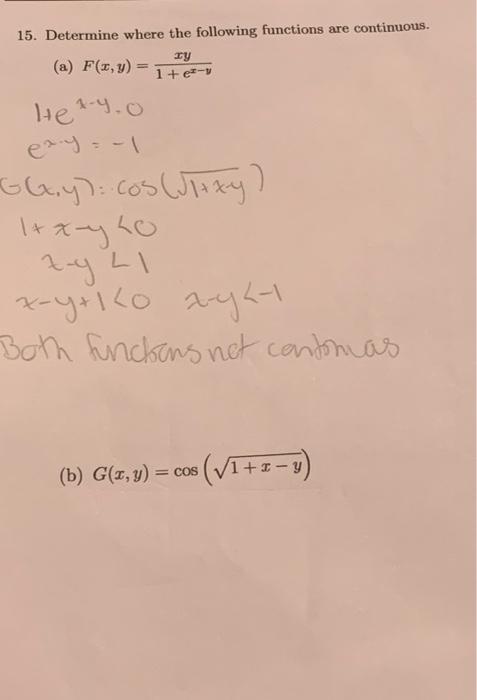 15. Determine where the following functions are continuous.
(a) F(x, y) = xy / (1 + e^{x−y})
1+e^{x-y} = 0
e^{x-y} = -1
G(x,y) = cos(√(1+x-y))
1+x-y<0
x-y<1
x-y+1<0 x-y<-1
Both functions not continuous
(b) G(x, y) = cos (√(1 + x − y))